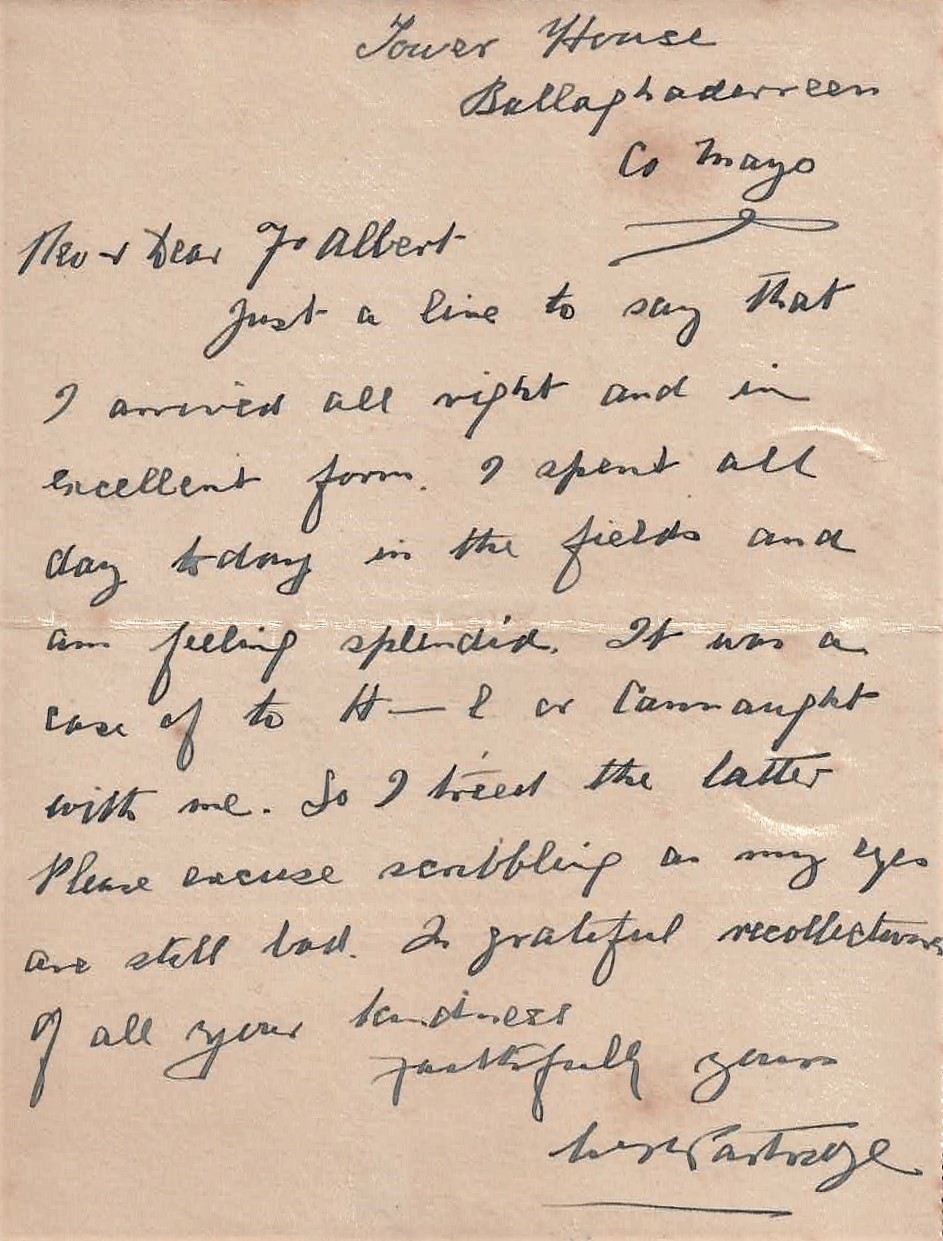 Tower House
Ballaghaderreen
Co Mayo
Rev & Dear Fr Albert
Just a line to say that
I arrived all right and in
excellent form. I spent all
day today in the fields and
am feeling splendid. It was a
case of to H—l or Connaught
with me. So I tried the latter
Please excuse scribbling as my eyes
are still bad. In grateful recollections
of all your kindness
Faithfully yours
Partridge